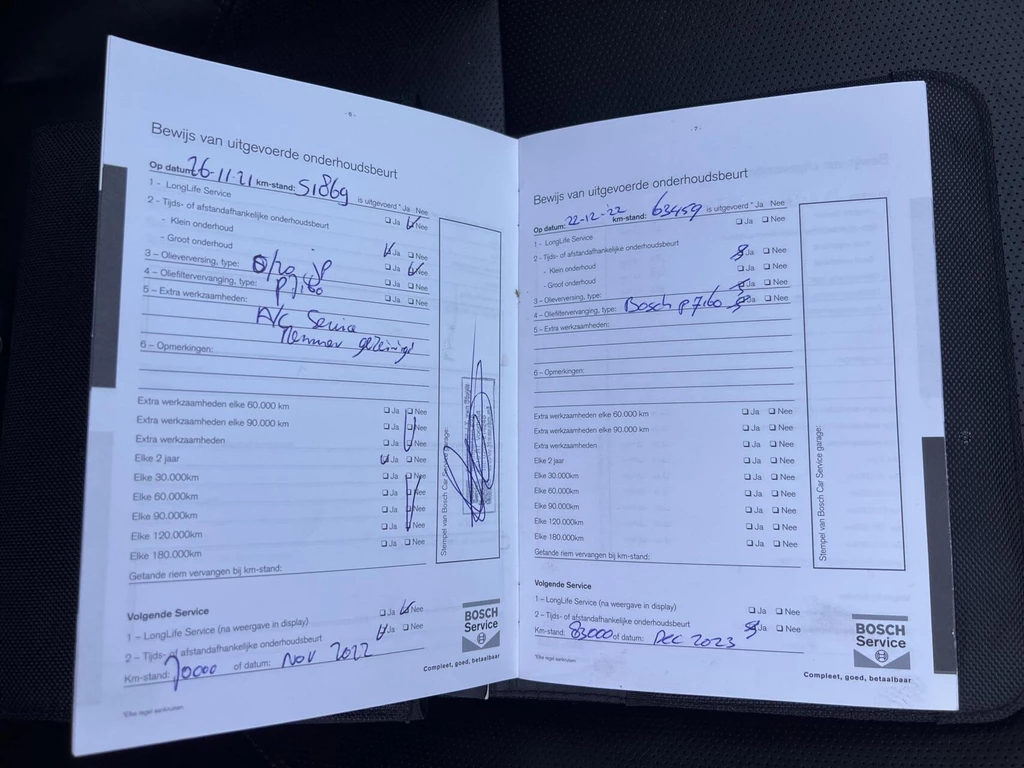 - 6 -
Bewijs van uitgevoerde onderhoudsbeurt
Op datum: 26-11-21 km-stand: 51869 is uitgevoerd * Ja Nee
1 - LongLife Service Ja Nee
2 - Tijds- of afstandafhankelijke onderhoudsbeurt
- Klein onderhoud Ja Nee
- Groot onderhoud Ja Nee
3 - Olieverversing, type: Ja Nee
4 - Oliefiltervervanging, type: P7160 Ja Nee
5 - Extra werkzaamheden:
A/C Service
Remmen gereinigd
6 - Opmerkingen:
Extra werkzaamheden elke 60.000 km Ja Nee
Extra werkzaamheden elke 90.000 km Ja Nee
Extra werkzaamheden Ja Nee
Elke 2 jaar Ja Nee
Elke 30.000km Ja Nee
Elke 60.000km Ja Nee
Elke 90.000km Ja Nee
Elke 120.000km Ja Nee
Elke 180.000km Ja Nee
Getande riem vervangen bij km-stand:
Stempel van Bosch Car Service garage:
Volgende Service
1 - LongLife Service (na weergave in display) Ja Nee
2 - Tijds- of afstandafhankelijke onderhoudsbeurt Ja Nee
Km-stand: 70000 of datum: NOV 2022
*Elke regel aankruisen
BOSCH
Service
Compleet, goed, betaalbaar
- 7 -
Bewijs van uitgevoerde onderhoudsbeurt
Op datum: 22-12-'22 km-stand: 63459 is uitgevoerd * Ja Nee
1 - LongLife Service Ja Nee
2 - Tijds- of afstandafhankelijke onderhoudsbeurt
- Klein onderhoud Ja Nee
- Groot onderhoud Ja Nee
3 - Olieverversing, type: Ja Nee
4 - Oliefiltervervanging, type: Bosch P7160 Ja Nee
5 - Extra werkzaamheden:
6 - Opmerkingen:
Extra werkzaamheden elke 60.000 km Ja Nee
Extra werkzaamheden elke 90.000 km Ja Nee
Extra werkzaamheden Ja Nee
Elke 2 jaar Ja Nee
Elke 30.000km Ja Nee
Elke 60.000km Ja Nee
Elke 90.000km Ja Nee
Elke 120.000km Ja Nee
Elke 180.000km Ja Nee
Getande riem vervangen bij km-stand:
Stempel van Bosch Car Service garage:
Volgende Service
1 - LongLife Service (na weergave in display) Ja Nee
2 - Tijds- of afstandafhankelijke onderhoudsbeurt Ja Nee
Km-stand: 83000 of datum: DEC 2023
*Elke regel aankruisen
BOSCH
Service
Compleet, goed, betaalbaar